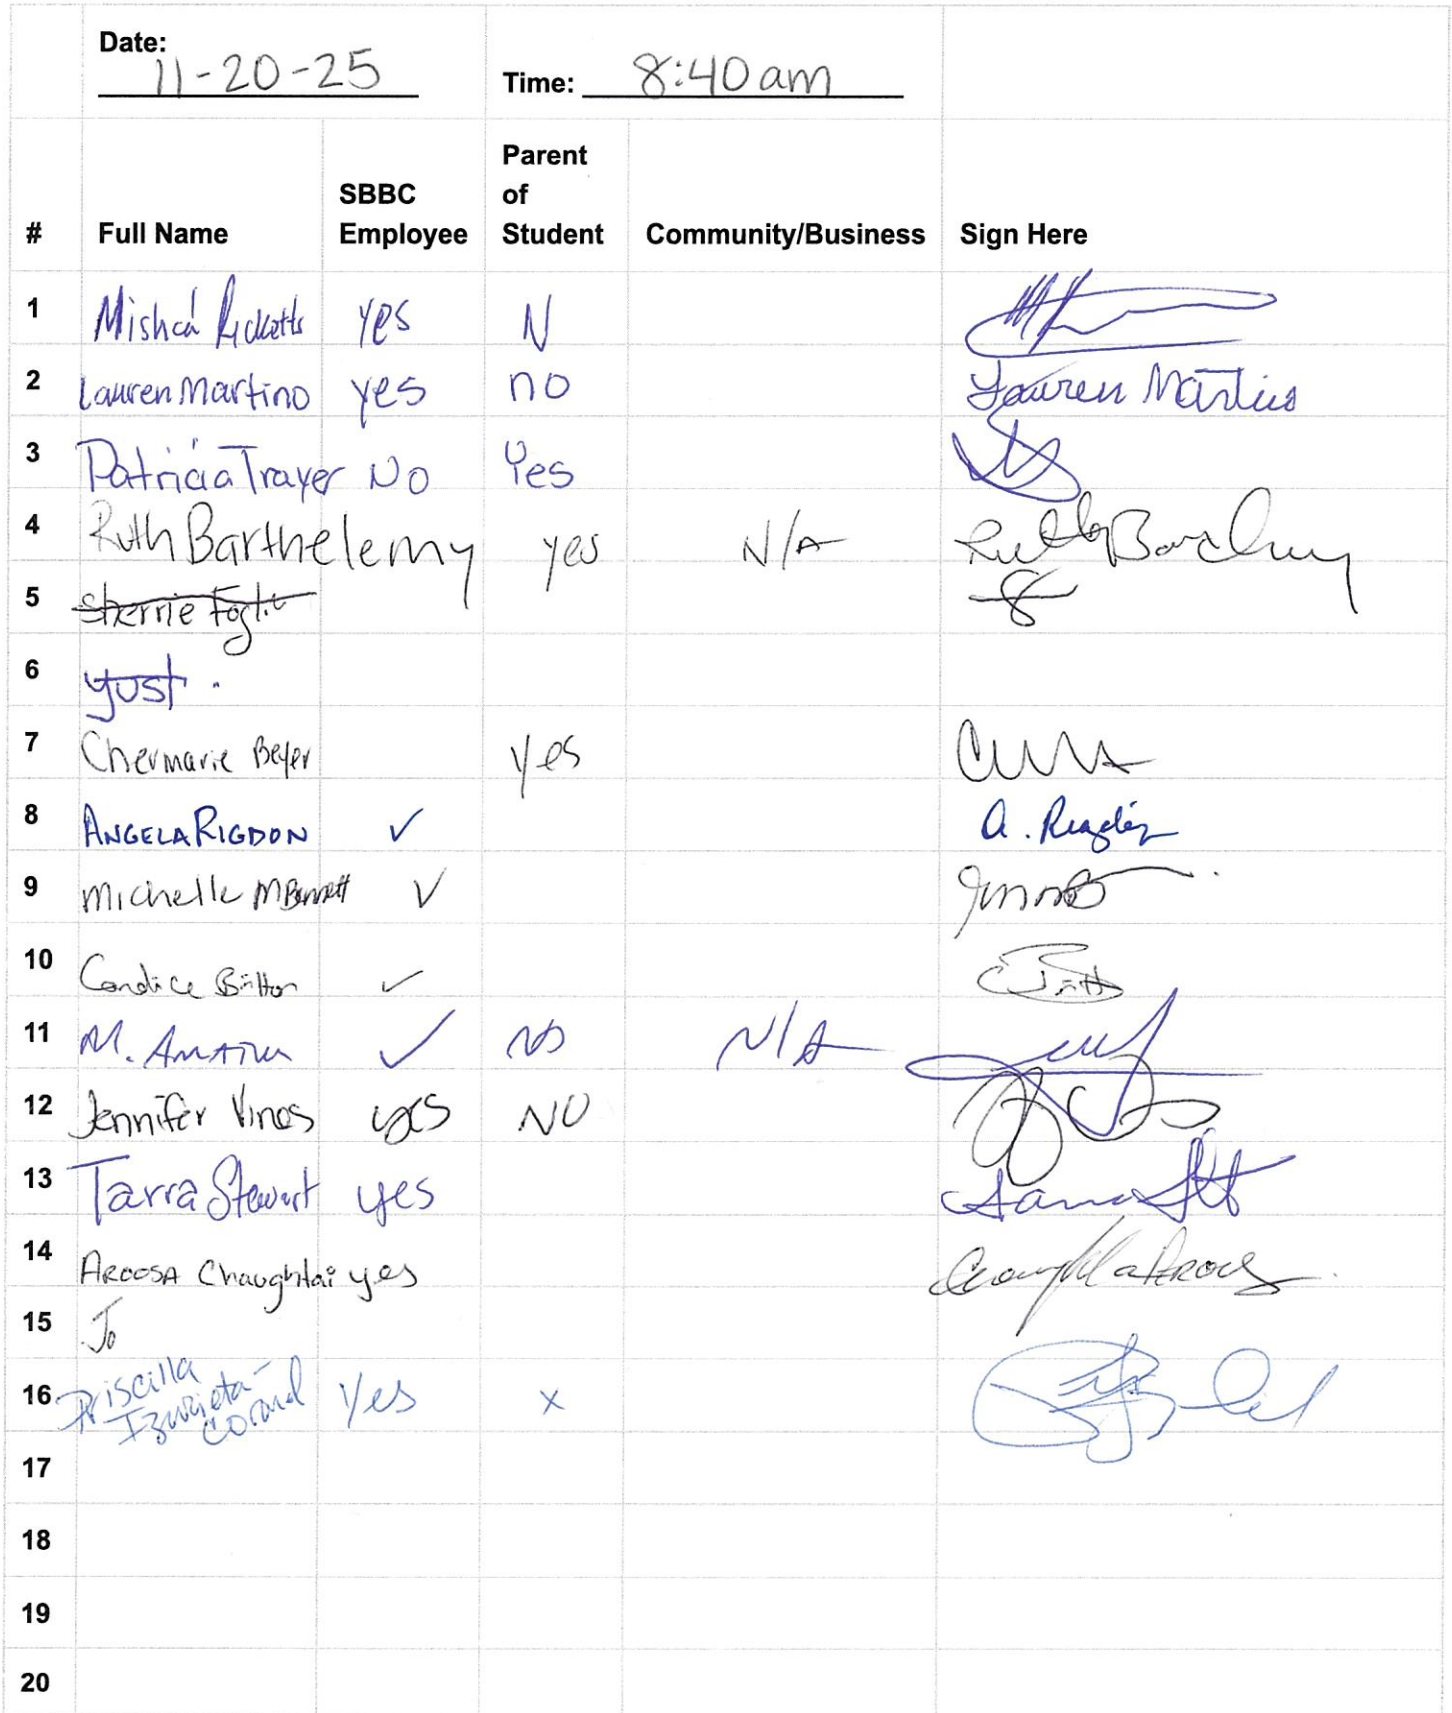 Date: 11-20-25 Time: 8:40am
# Full Name SBBC Employee Parent of Student Community/Business Sign Here
1 Mishcá Ricketts yes N
2 Lauren Martino yes no Lauren Martino
3 Patricia Trayer No Yes
4 Ruth Barthelemy yes N/A
5 Sherrie
6 yust.
7 Chermarie Beyer yes
8 ANGELA RIGDON ✓ A. Rigdon
9 Michelle M Bennett ✓
10 Candice Britton ✓
11 M. ✓ NO N/A
12 Jennifer Vines yes NO
13 Tarra Stewart yes
14 AROOSA Chaughtai yes
15 Jo
16 Priscilla Izurieta- Yes x
17
18
19
20